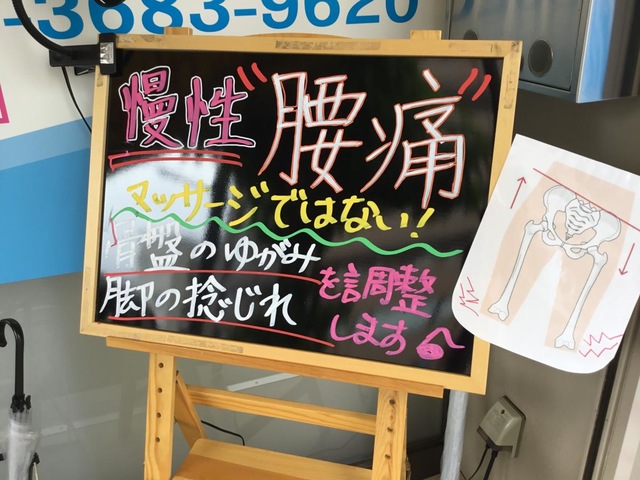 -3683-9620
慢性"腰痛"
マッサージではない!
骨盤のゆがみ
脚の捻じれ
を調整
します